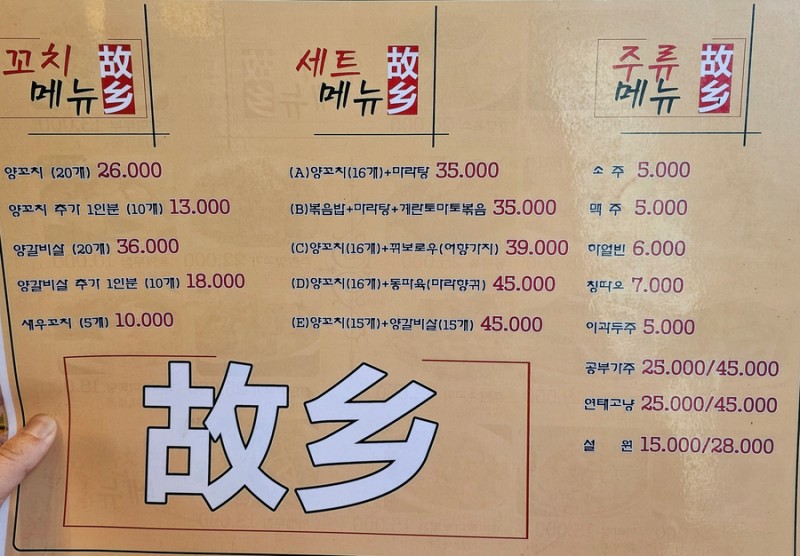 꼬치
메뉴
故乡
양꼬치 (20개) 26.000
양꼬치 추가 1인분 (10개) 13.000
양갈비살 (20개) 36.000
양갈비살 추가 1인분 (10개) 18.000
새우꼬치 (5개) 10.000
세트
메뉴
故乡
(A)양꼬치(16개)+마라탕 35.000
(B)볶음밥+마라탕+계란토마토볶음 35.000
(C)양꼬치(16개)+꿔보로우(어향가지) 39.000
(D)양꼬치(16개)+동파육(마라향귀) 45.000
(E)양꼬치(15개)+양갈비살(15개) 45.000
주류
메뉴
故乡
소 주 5.000
맥 주 5.000
하얼빈 6.000
칭따오 7.000
이과두주 5.000
공부가주 25.000/45.000
연태고냥 25.000/45.000
설 원 15.000/28.000
故乡